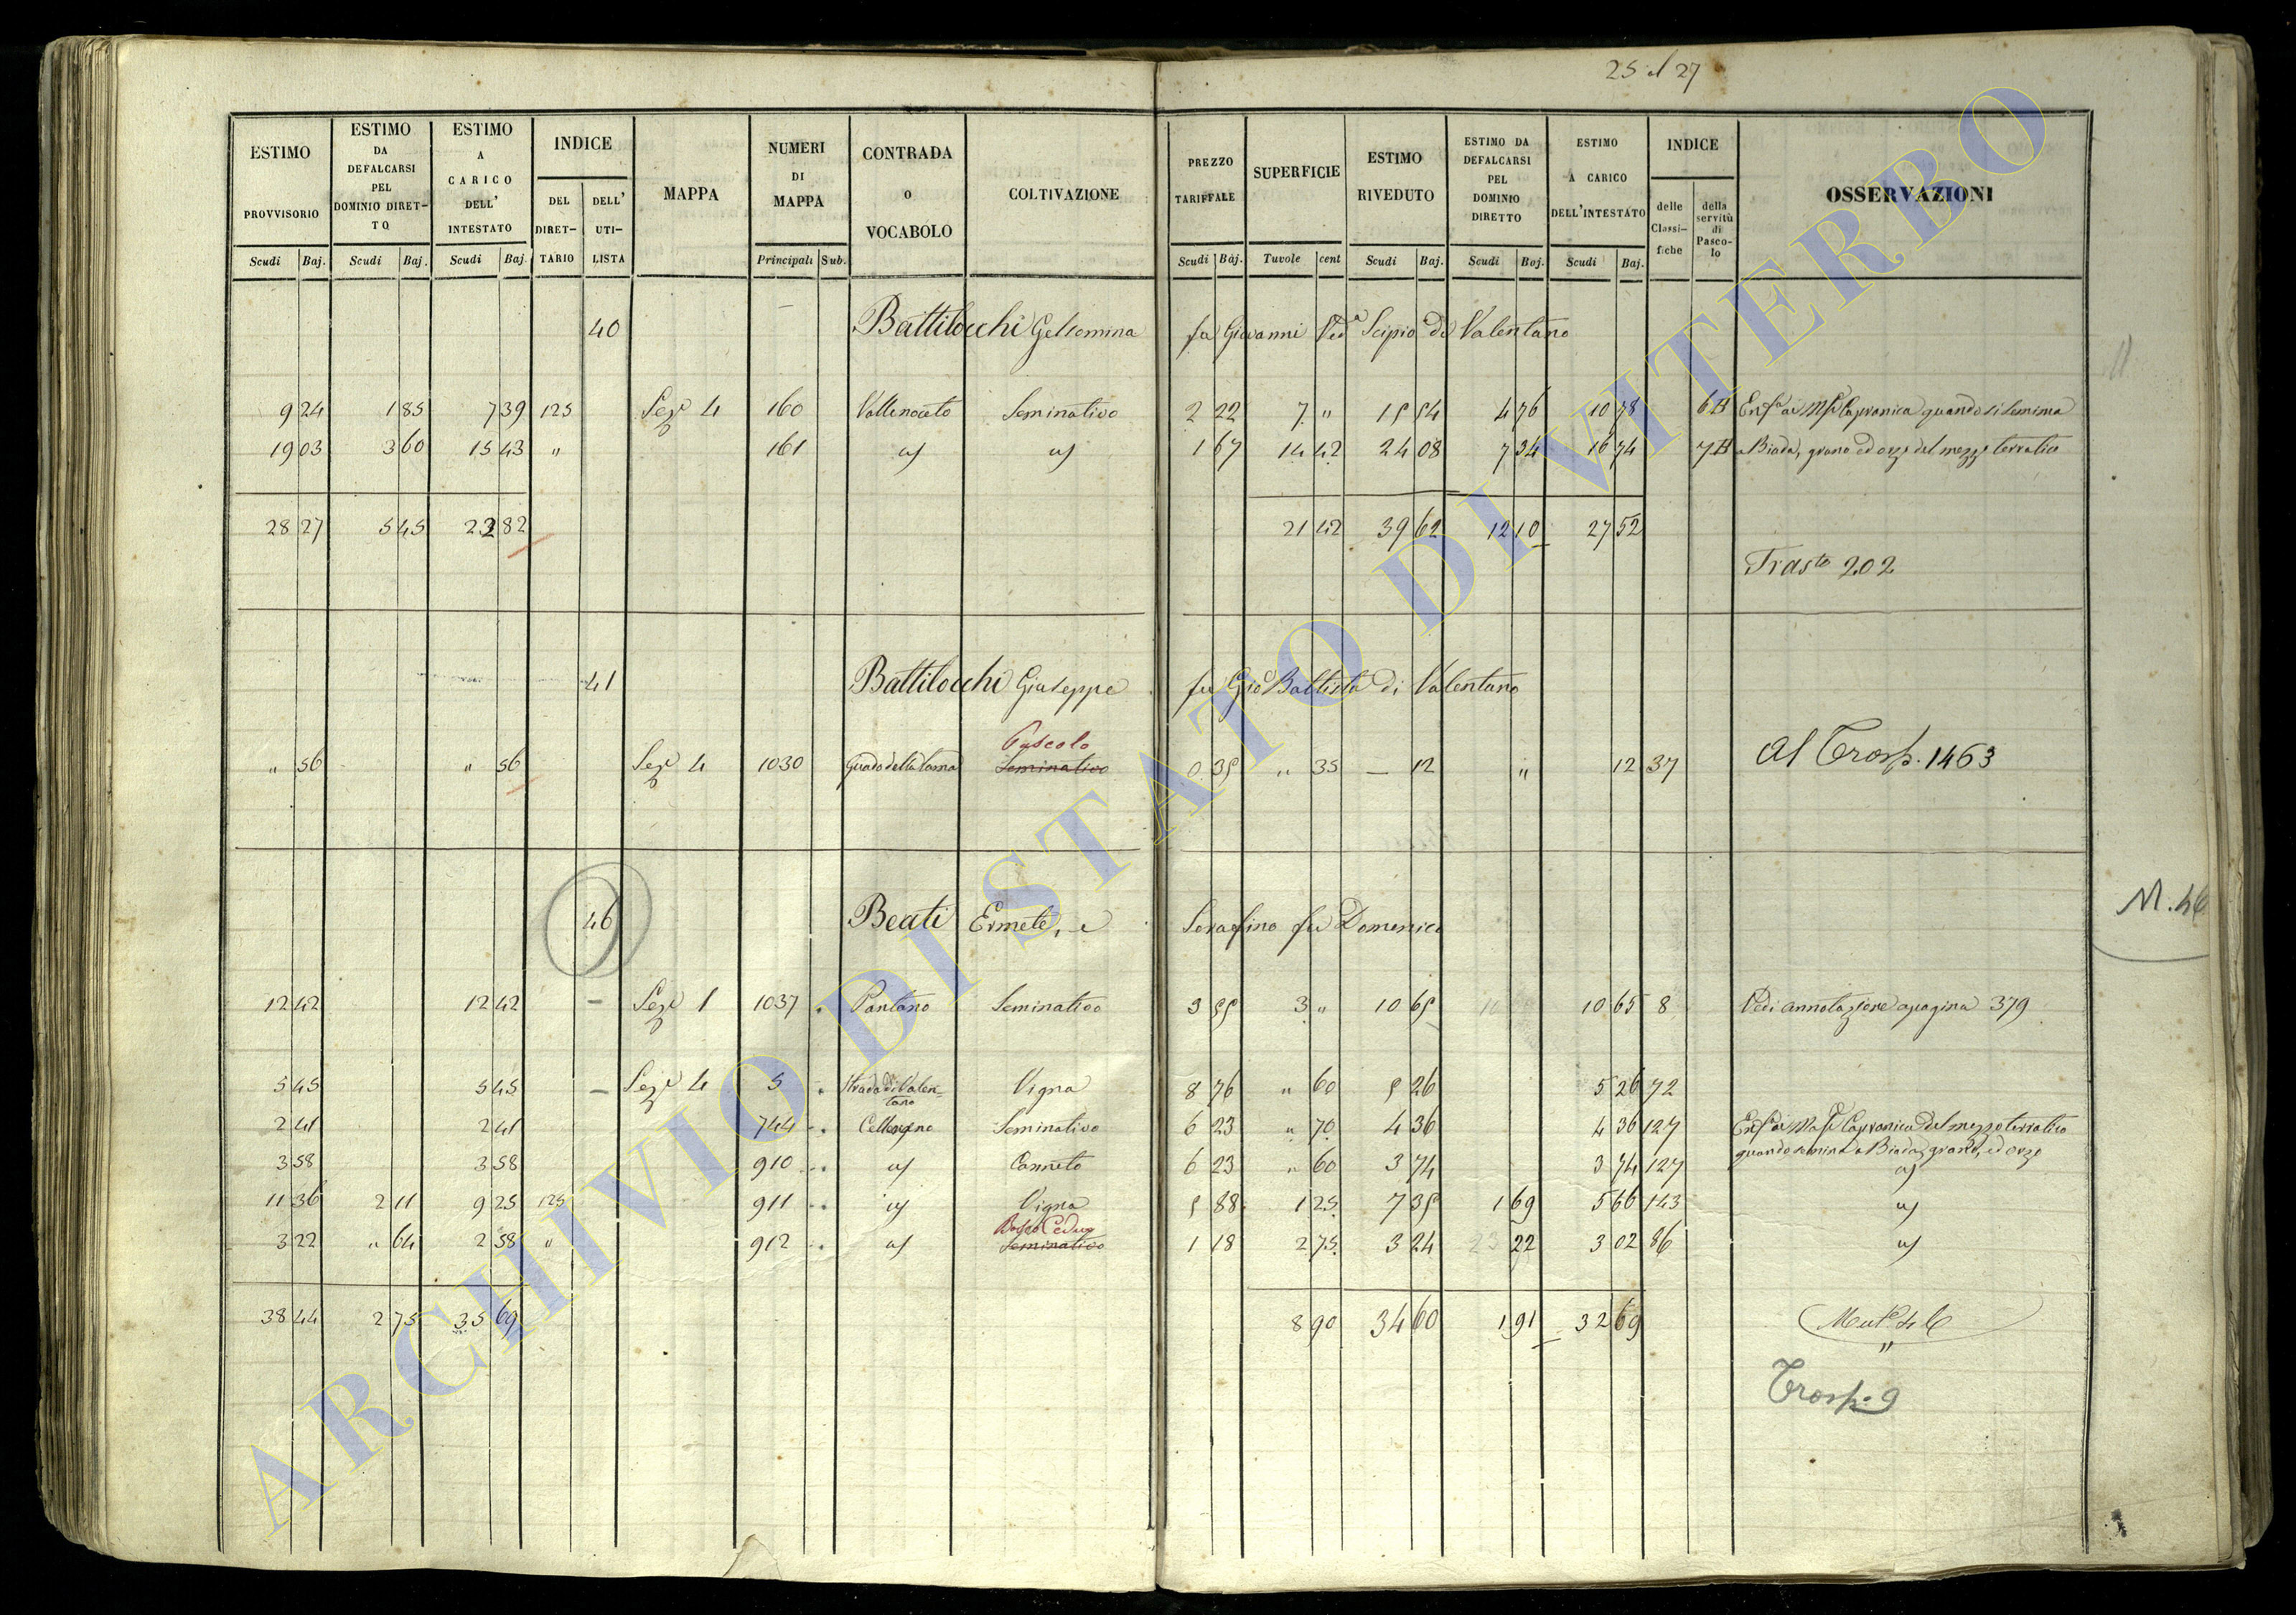 25 al 27
ESTIMO PROVVISORIO Scudi Baj.
ESTIMO DA DEFALCARSI PEL DOMINIO DIRET-TO Scudi Baj.
ESTIMO A CARICO DELL' INTESTATO Scudi Baj.
INDICE DEL DIRET-TARIO DELL' UTI-LISTA
MAPPA
NUMERI DI MAPPA Principali Sub.
CONTRADA O VOCABOLO
COLTIVAZIONE
PREZZO TARIFFALE Scudi Baj.
SUPERFICIE Tavole cent
ESTIMO RIVEDUTO Scudi Baj.
ESTIMO DA DEFALCARSI PEL DOMINIO DIRETTO Scudi Baj.
ESTIMO A CARICO DELL'INTESTATO Scudi Baj.
INDICE delle Classi-fiche della servitù di Pasco-lo
OSSERVAZIONI
40 Battilocchi Gelsomina fu Giovanni Ved.a Scipio di Valentano
9 24 1 85 7 39 125 Sez.e 4 160 Vallenoceto Seminativo 2 22 7 " 15 54 4 76 10 78 6 B Enf.a ai Capranica quando si semina
19 03 3 60 15 43 " 161 " " 1 67 14 42 24 08 7 34 16 74 7 B a Biada, grano ed orzo del mezzo terratico
28 27 5 45 22 82 21 42 39 62 12 10 27 52
Trasto 202
41 Battilocchi Giuseppe fu Gio Battista di Valentano
Pascolo
" 56 " 56 Sez.e 4 1030 Seminativo 0 35 " 35 — 12 " 12 37 Al Trasp. 1463
46 Beati Ermete, e Serafino fu Domenico
M. 46
12 42 12 42 – Sez.e 1 1037 Pantano Seminativo 3 55 3 " 10 65 10 65 8 Vedi annotazione a pagina 379
5 45 5 45 – Sez.e 4 5 Strada di Valen-
tano Vigna 8 76 " 60 5 26 5 26 72
2 41 2 41 744 Cellereno Seminativo 6 23 " 70 4 36 4 36 127 Enf.a ai Capranica del mezzo terratico
quando semina a Biada, grano, ed orzo
3 58 3 58 910 " Canneto 6 23 " 60 3 74 3 74 127 "
11 36 2 11 9 25 125 911 " Vigna 5 88 1 25 7 35 1 69 5 66 143 "
Bosco Ceduo
3 22 " 64 2 58 " 912 " Seminativo 1 18 2 75 3 24 22 3 02 86 "
38 44 2 75 35 69 8 90 34 60 1 91 32 69
Trasp. 9
ARCHIVIO DI STATO DI VITERBO